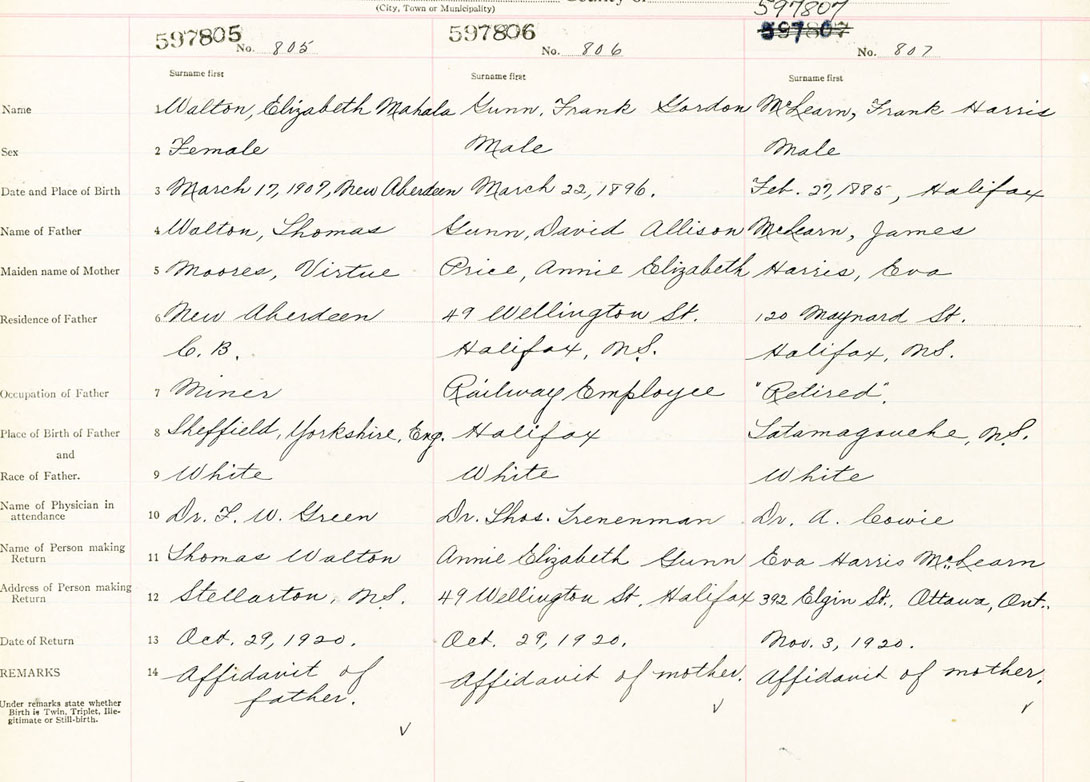 (City, Town or Municipality)
597807
597805 No. 805 597806 No. 806 597807 No. 807
Surname first Surname first Surname first
Name 1 Walton, Elizabeth Mahala Gunn, Frank Gordon McLearn, Frank Harris
Sex 2 Female Male Male
Date and Place of Birth 3 March 17, 1907, New Aberdeen March 22, 1896. Feb. 27, 1885, Halifax
Name of Father 4 Walton, Thomas Gunn, David Allison McLearn, James
Maiden name of Mother 5 Moores, Virtue Price, Annie Elizabeth Harris, Eva
Residence of Father 6 New Aberdeen 49 Wellington St. 120 Maynard St.
C. B. Halifax, N.S. Halifax, N.S.
Occupation of Father 7 Miner Railway Employee "Retired".
Place of Birth of Father 8 Sheffield, Yorkshire, Eng. Halifax Tatamagouche, N.S.
and
Race of Father. 9 White White White
Name of Physician in
attendance 10 Dr. F. W. Green Dr. Thos. Trenenman Dr. A. Cowie
Name of Person making
Return 11 Thomas Walton Annie Elizabeth Gunn Eva Harris McLearn
Address of Person making
Return 12 Stellarton, N.S. 49 Wellington St, Halifax 392 Elgin St., Ottawa, Ont.
Date of Return 13 Oct. 29, 1920. Oct. 29, 1920. Nov. 3, 1920.
REMARKS 14 Affidavit of Affidavit of mother. Affidavit of mother.
father.
Under remarks state whether
Birth is Twin, Triplet, Ille-
gitimate or Still-birth.